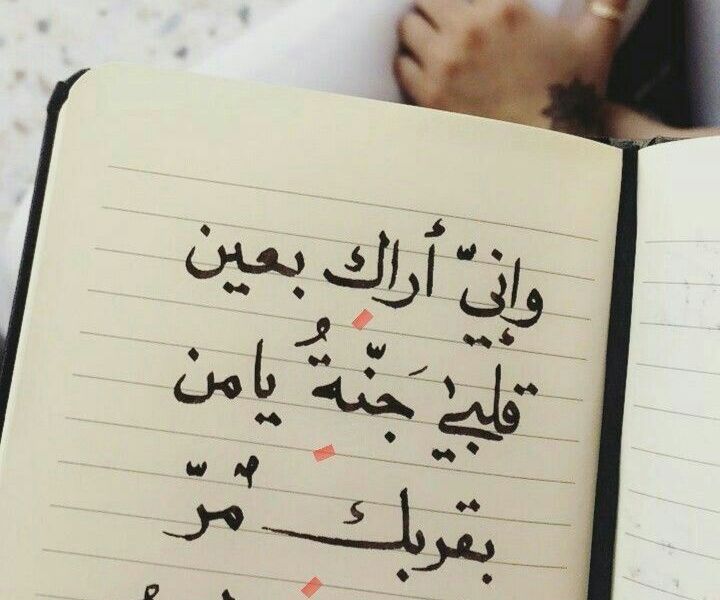 وإنيّ أراك بعين
قلبي جَنّةُ يامن
بقربك مُرّ